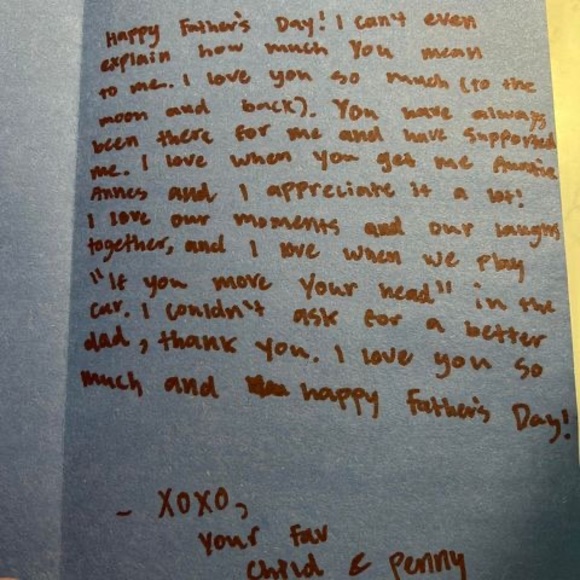 Happy Father's Day! I can't even
explain how much you mean
to me. I love you so much (to the
moon and back). You have always
been there for me and have supported
me. I love when you get me Auntie
Annes and I appreciate it a lot!
I love our moments and our laughs
together, and I love when we play
"If you move your head" in the
car. I couldn't ask for a better
dad, thank you. I love you so
much and happy Father's Day!
- XOXO,
Your fav
child & Penny